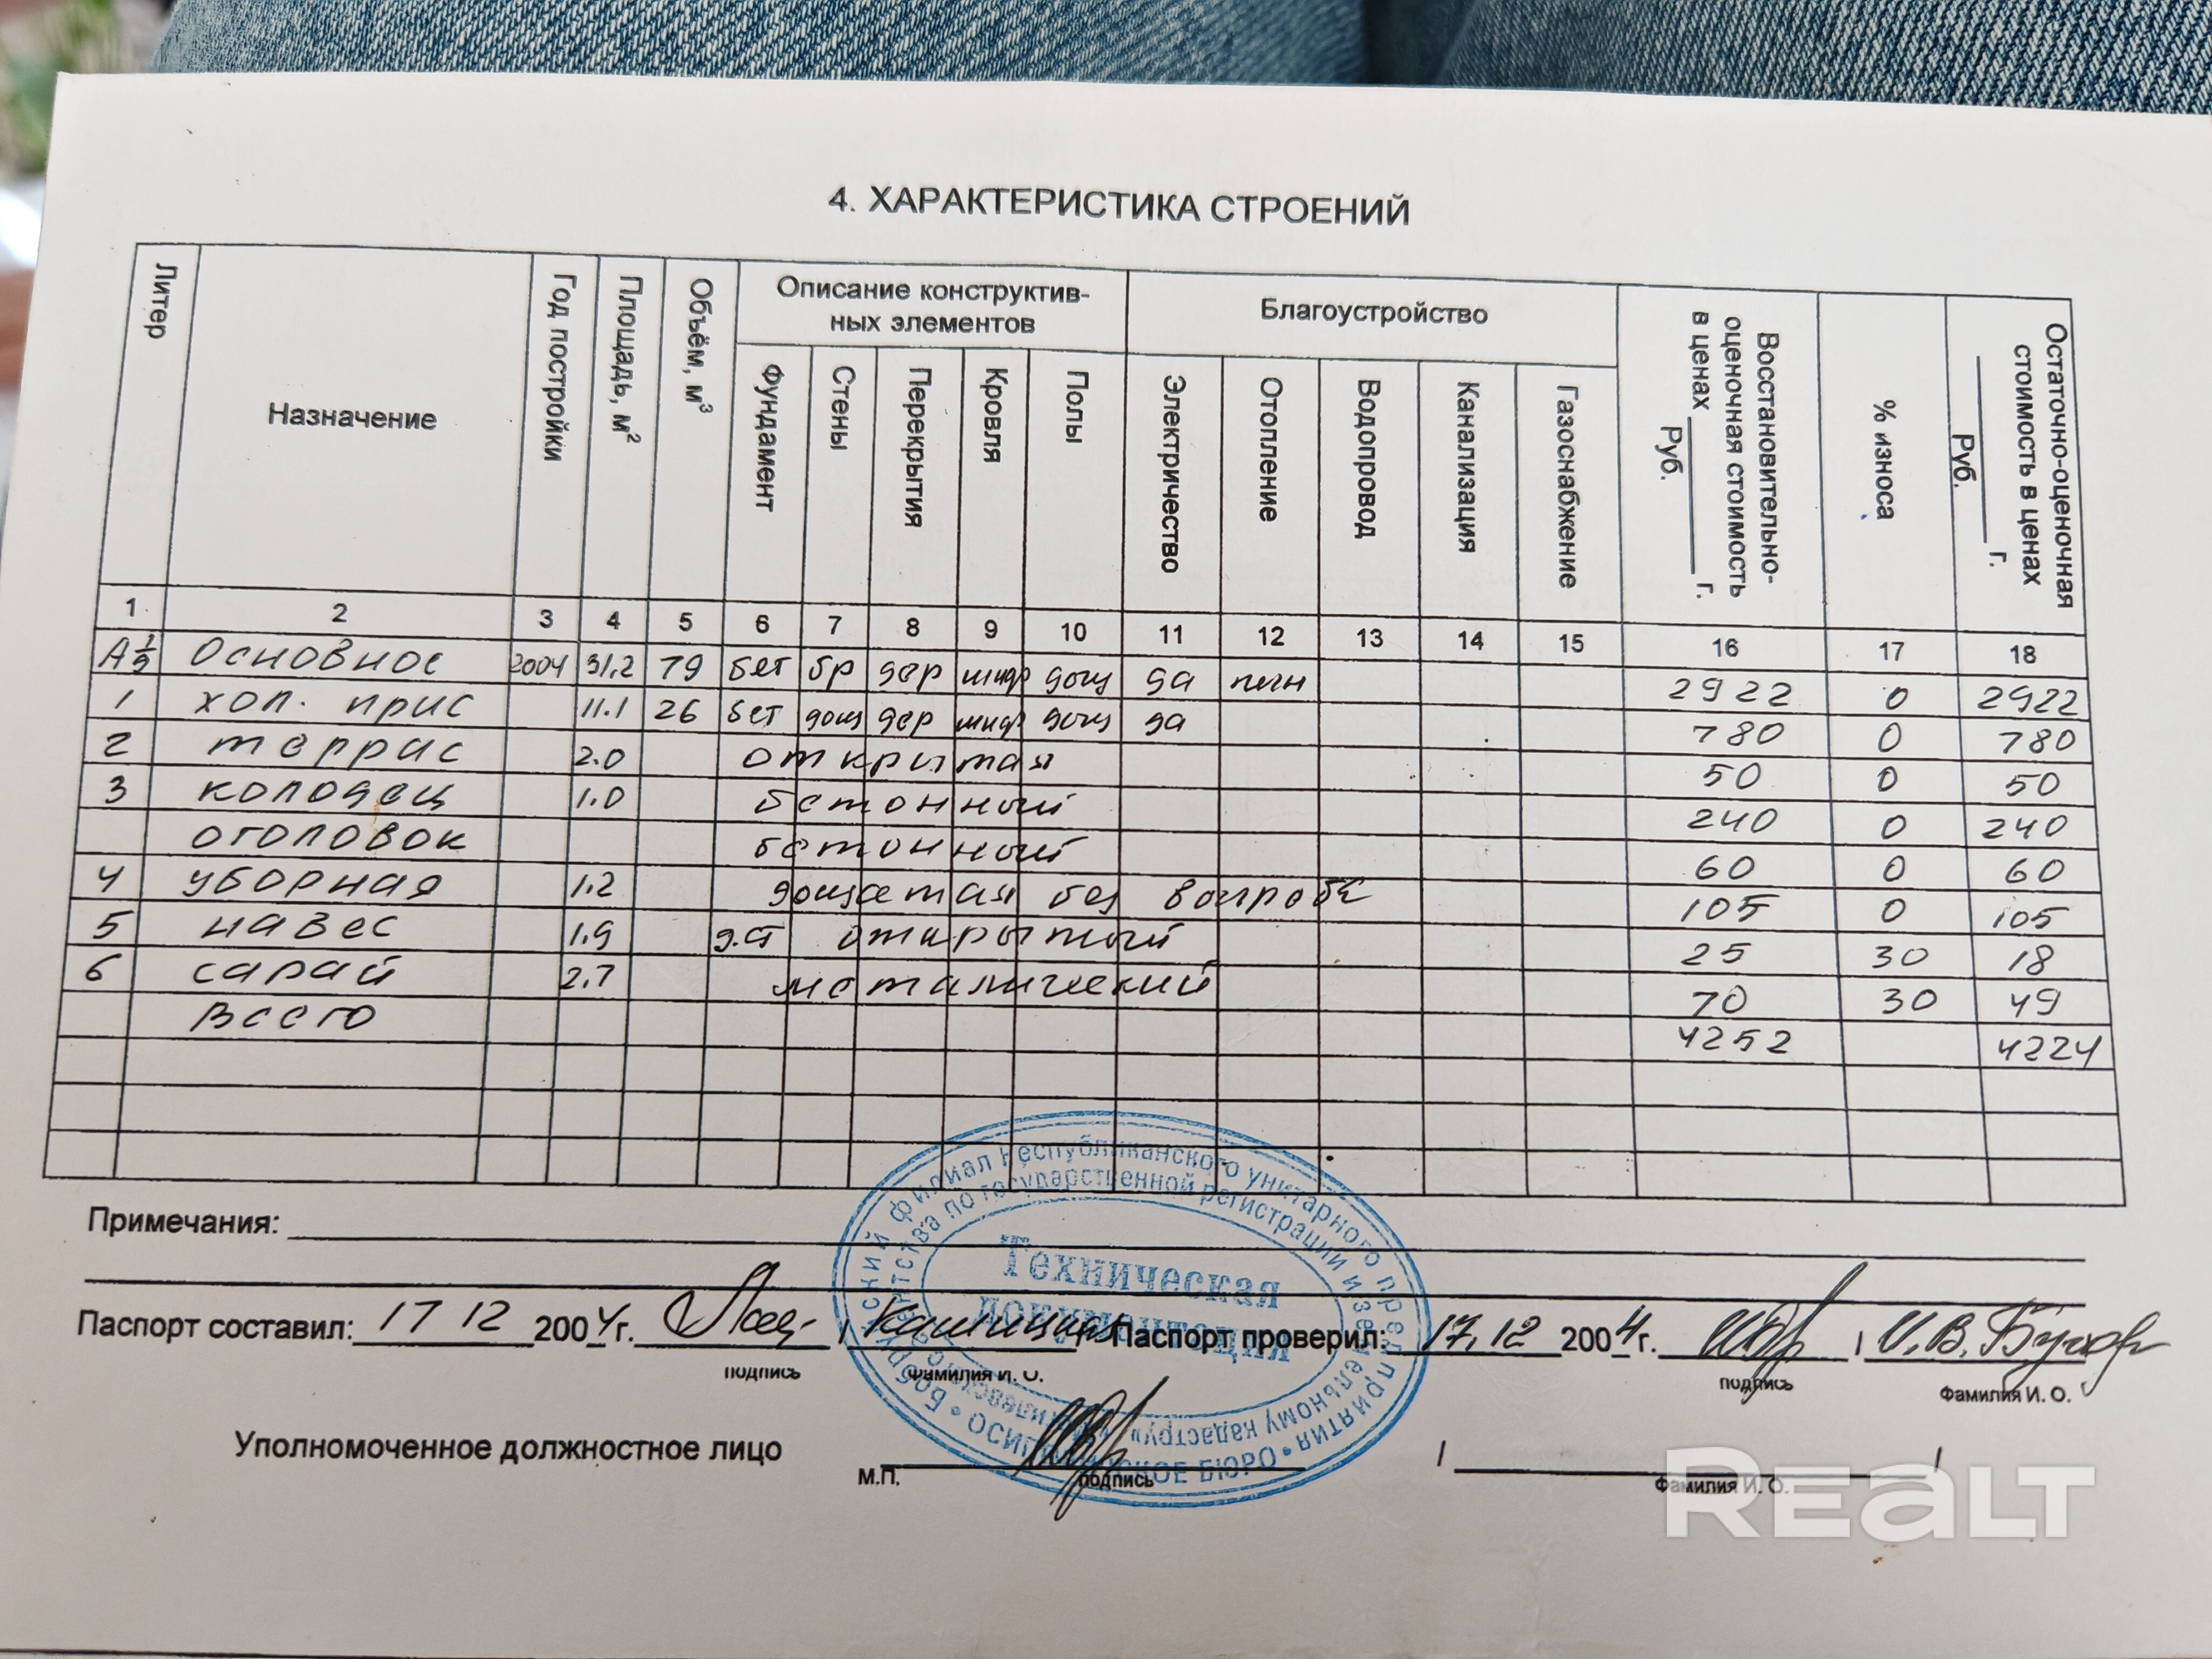 4. ХАРАКТЕРИСТИКА СТРОЕНИЙ
Литер
Назначение
Год постройки
Площадь, м²
Объём, м³
Описание конструктив-
ных элементов
Фундамент
Стены
Перекрытия
Кровля
Полы
Благоустройство
Электричество
Отопление
Водопровод
Канализация
Газоснабжение
Восстановительно-
оценочная стоимость
в ценах ______ г.
Руб.
% износа
Остаточно-оценочная
стоимость в ценах
______ г.
Руб.
1 2 3 4 5 6 7 8 9 10 11 12 13 14 15 16 17 18
Основное 2004 31.2 79 бет бр дер шиф дощ да печн 2922 0 2922
1 хол. прис 11.1 26 бет дощ дер шиф дощ да 780 0 780
2 террас 2.0 открытая 50 0 50
3 колодец 1.0 бетонный 240 0 240
оголовок бетонный 60 0 60
4 уборная 1.2 дощатая без 105 0 105
5 навес 1.9 открытый 25 30 18
6 сарай 2.7 металический 70 30 49
Всего 4252 4224
Примечания:
Паспорт составил: 17 12 2004г. / Паспорт проверил: 17.12 2004г. / И.В.
подпись Фамилия И. О. подпись Фамилия И. О.
Уполномоченное должностное лицо / /
М.П. подпись Фамилия И. О.
филиал Республиканского унитарного предприятия
агентства по государственной регистрации и земельному кадастру»
Техническая
документация
REALT